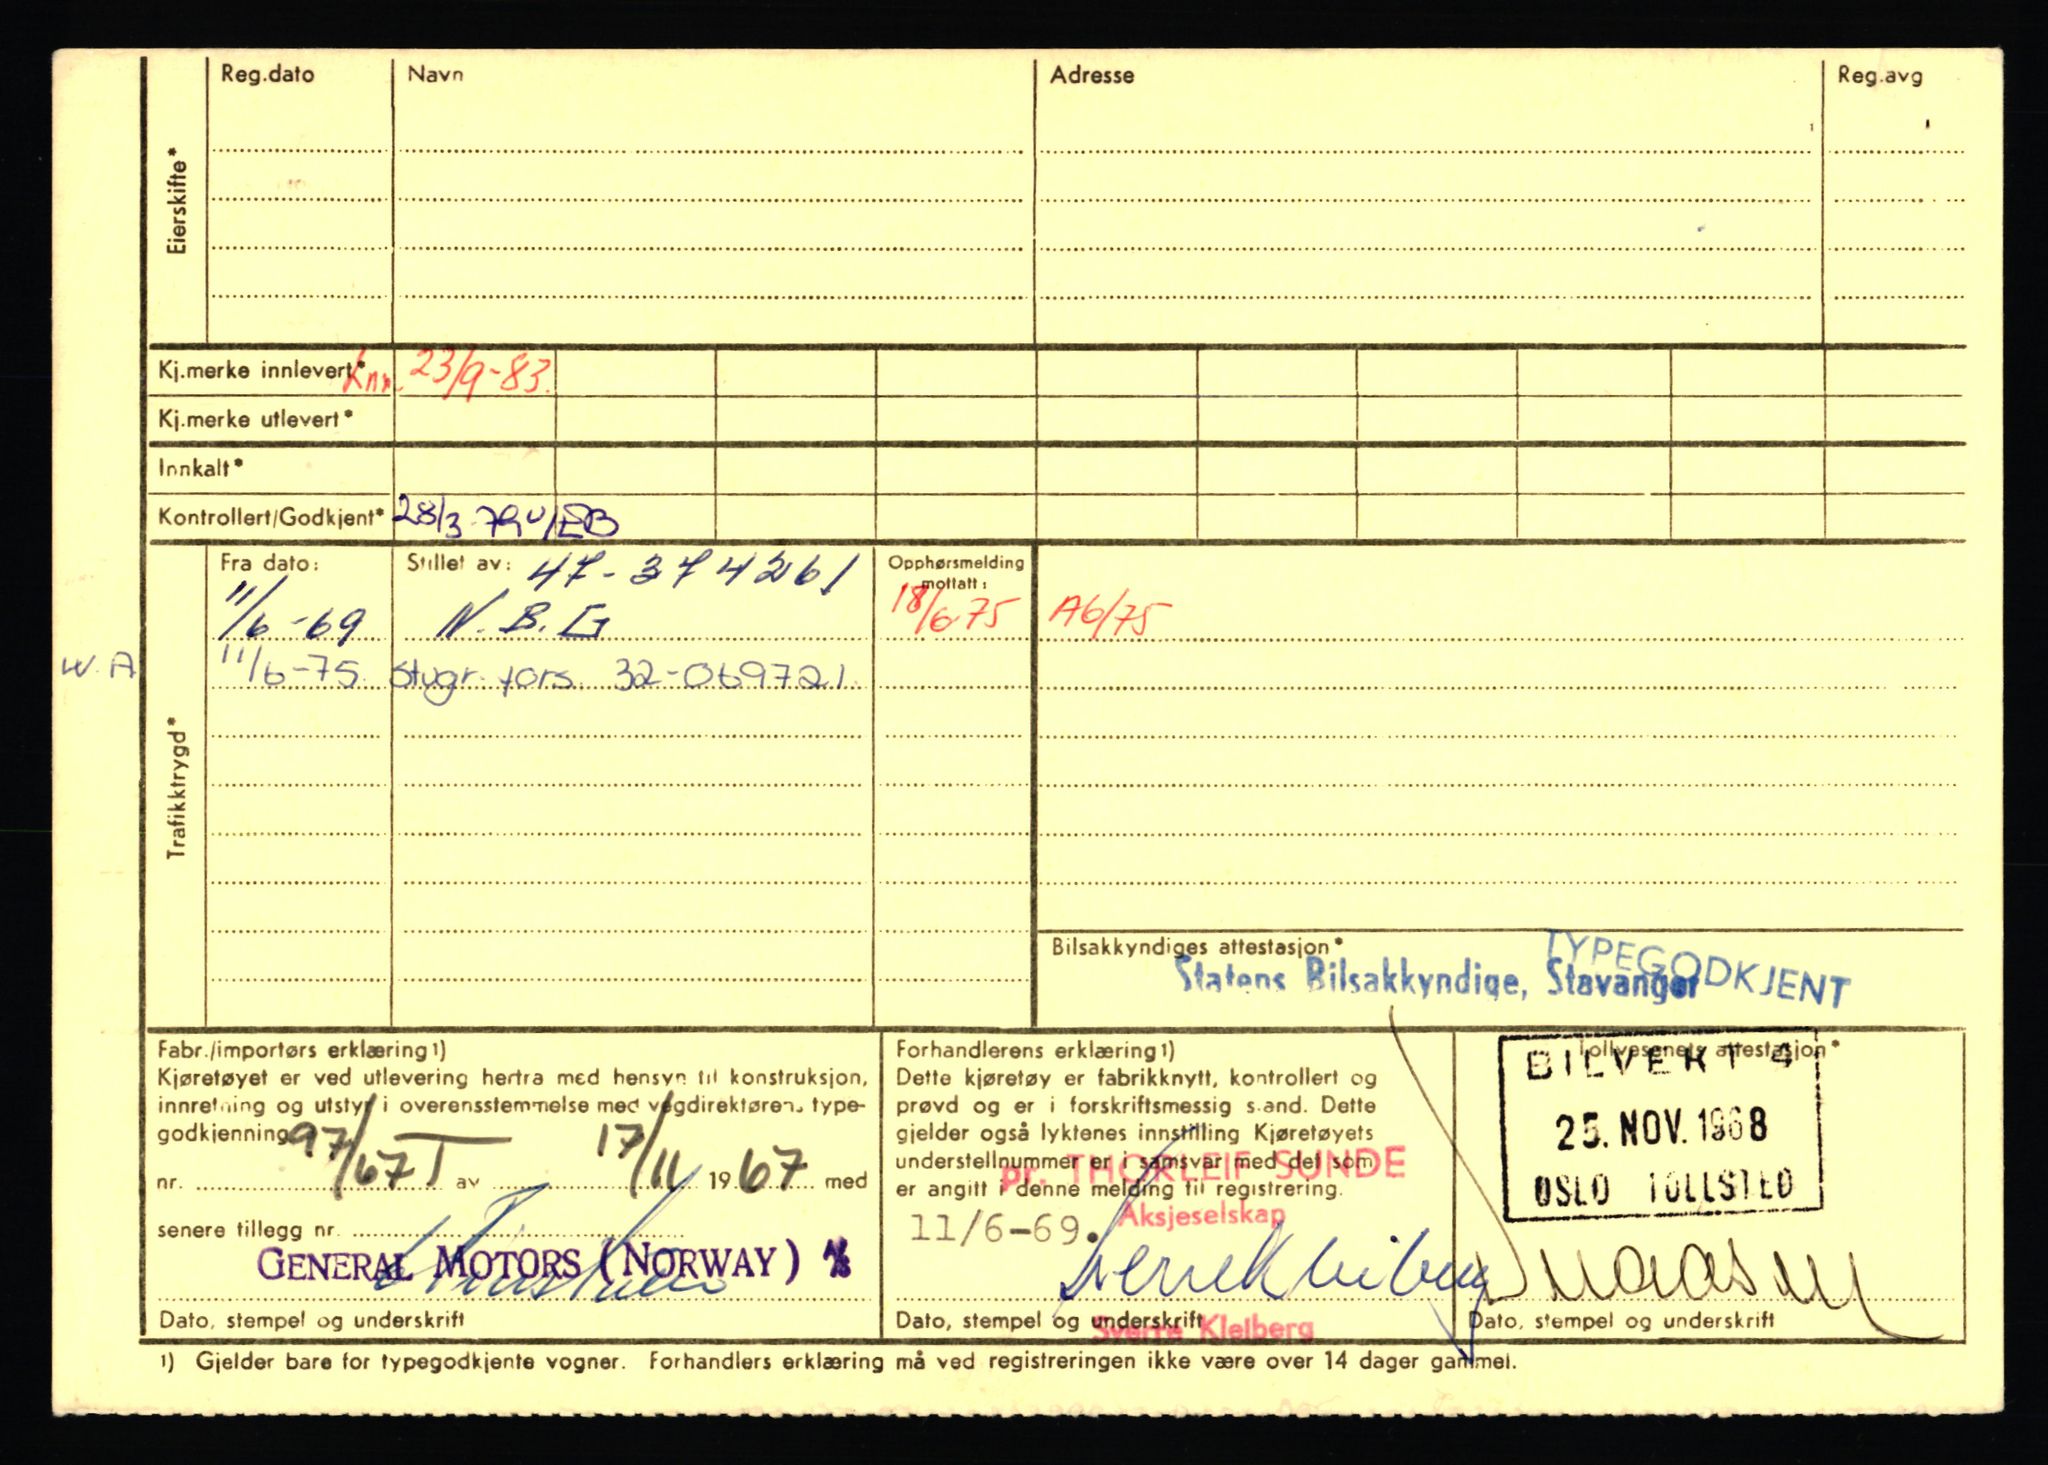 Reg.dato Navn Adresse Reg.avg
Eierskifte*
Kj.merke innlevert* 23/9-83.
Kj.merke utlevert*
Innkalt*
Kontrollert/Godkjent* 28/3-79 /EB
Trafikktrygd*
Fra dato: Stillet av: 47-374261 Opphørsmelding mottatt:
11/6-69 N.B.G 18/6-75 A6/75
W.A 11/6-75. Stvgr. fors. 32-069721.
Bilsakkyndiges attestasjon*
TYPEGODKJENT
Statens Bilsakkyndige, Stavanger
Fabr./importørs erklæring 1)
Kjøretøyet er ved utlevering herfra med hensyn til konstruksjon,
innretning og utstyr i overensstemmelse med vegdirektørens type-
godkjenning
nr. 97/67T av 17/11 1967 med
senere tillegg nr.
GENERAL MOTORS (NORWAY) A/S
Dato, stempel og underskrift
Forhandlerens erklæring 1)
Dette kjøretøy er fabrikknytt, kontrollert og
prøvd og er i forskriftsmessig stand. Dette
gjelder også lyktenes innstilling Kjøretøyets
understellnummer er i samsvar med det som
er angitt i denne melding til registrering.
pr. THORLEIF SUNDE
Aksjeselskap
11/6-69.
Sverre Kleiberg
Dato, stempel og underskrift
Tollvesenets attestasjon*
BILVEKT 4
25. NOV. 1968
OSLO TOLLSTED
Dato, stempel og underskrift
1) Gjelder bare for typegodkjente vogner. Forhandlers erklæring må ved registreringen ikke være over 14 dager gammel.